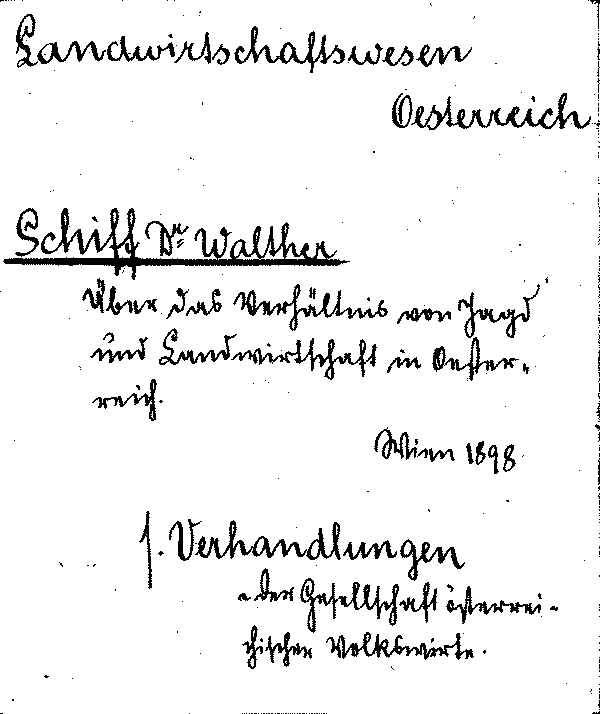 Landwirtschaftswesen
Oesterreich
Schiff Dr Walther
Über das Verhältnis von Jagd
und Landwirtschaft in Oester-
reich.
Wien 1898
s. Verhandlungen
der Gesellschaft österrei-
chischer Volkswirte.